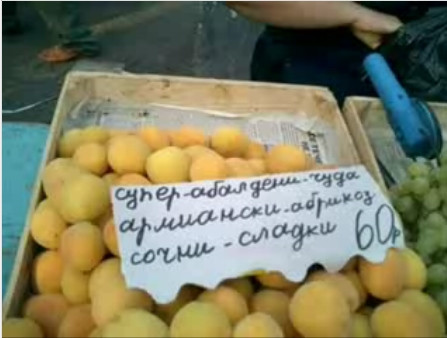 супер-абалдени-чуда
армиански-абрикоз
сочни-сладки 60р